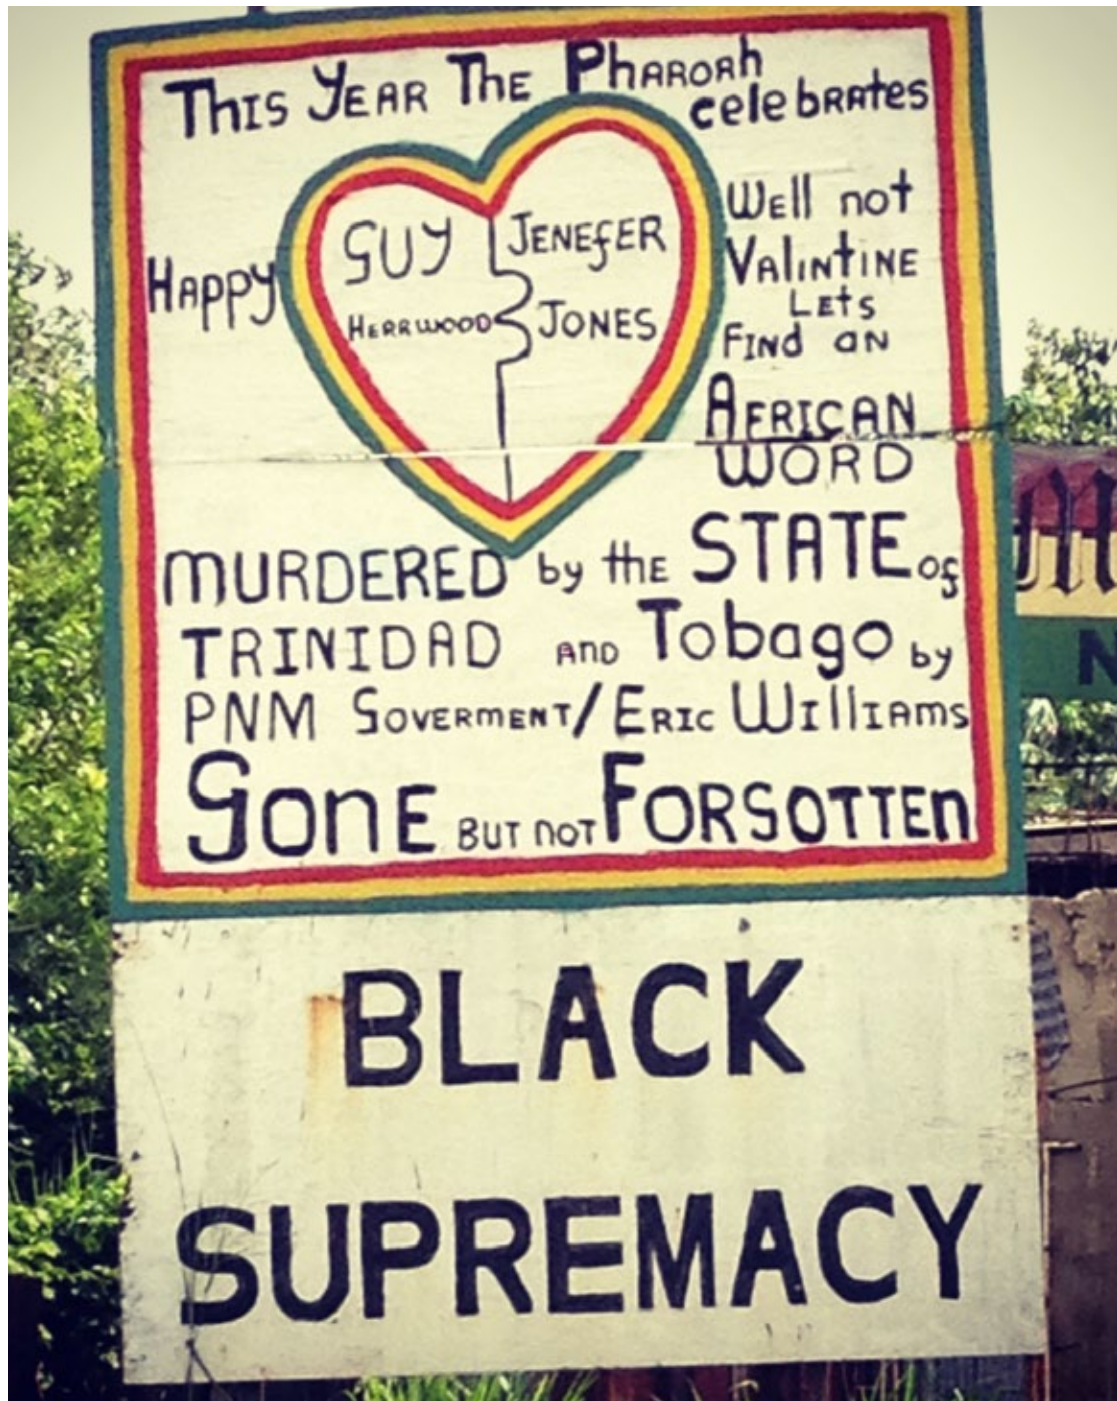 THIS YEAR THE PHAROAH
celebRATES
HAPPY
GUY JENEFER
HERRWOOD JONES
Well not
VALINTINE
LETS
FIND AN
AFRICAN
WORD
MURDERED by the STATE of
TRINIDAD AND Tobago by
PNM GOVERMENT/ERIC WIllIAMS
GONE BUT NOT FORGOTTEN
BLACK
SUPREMACY